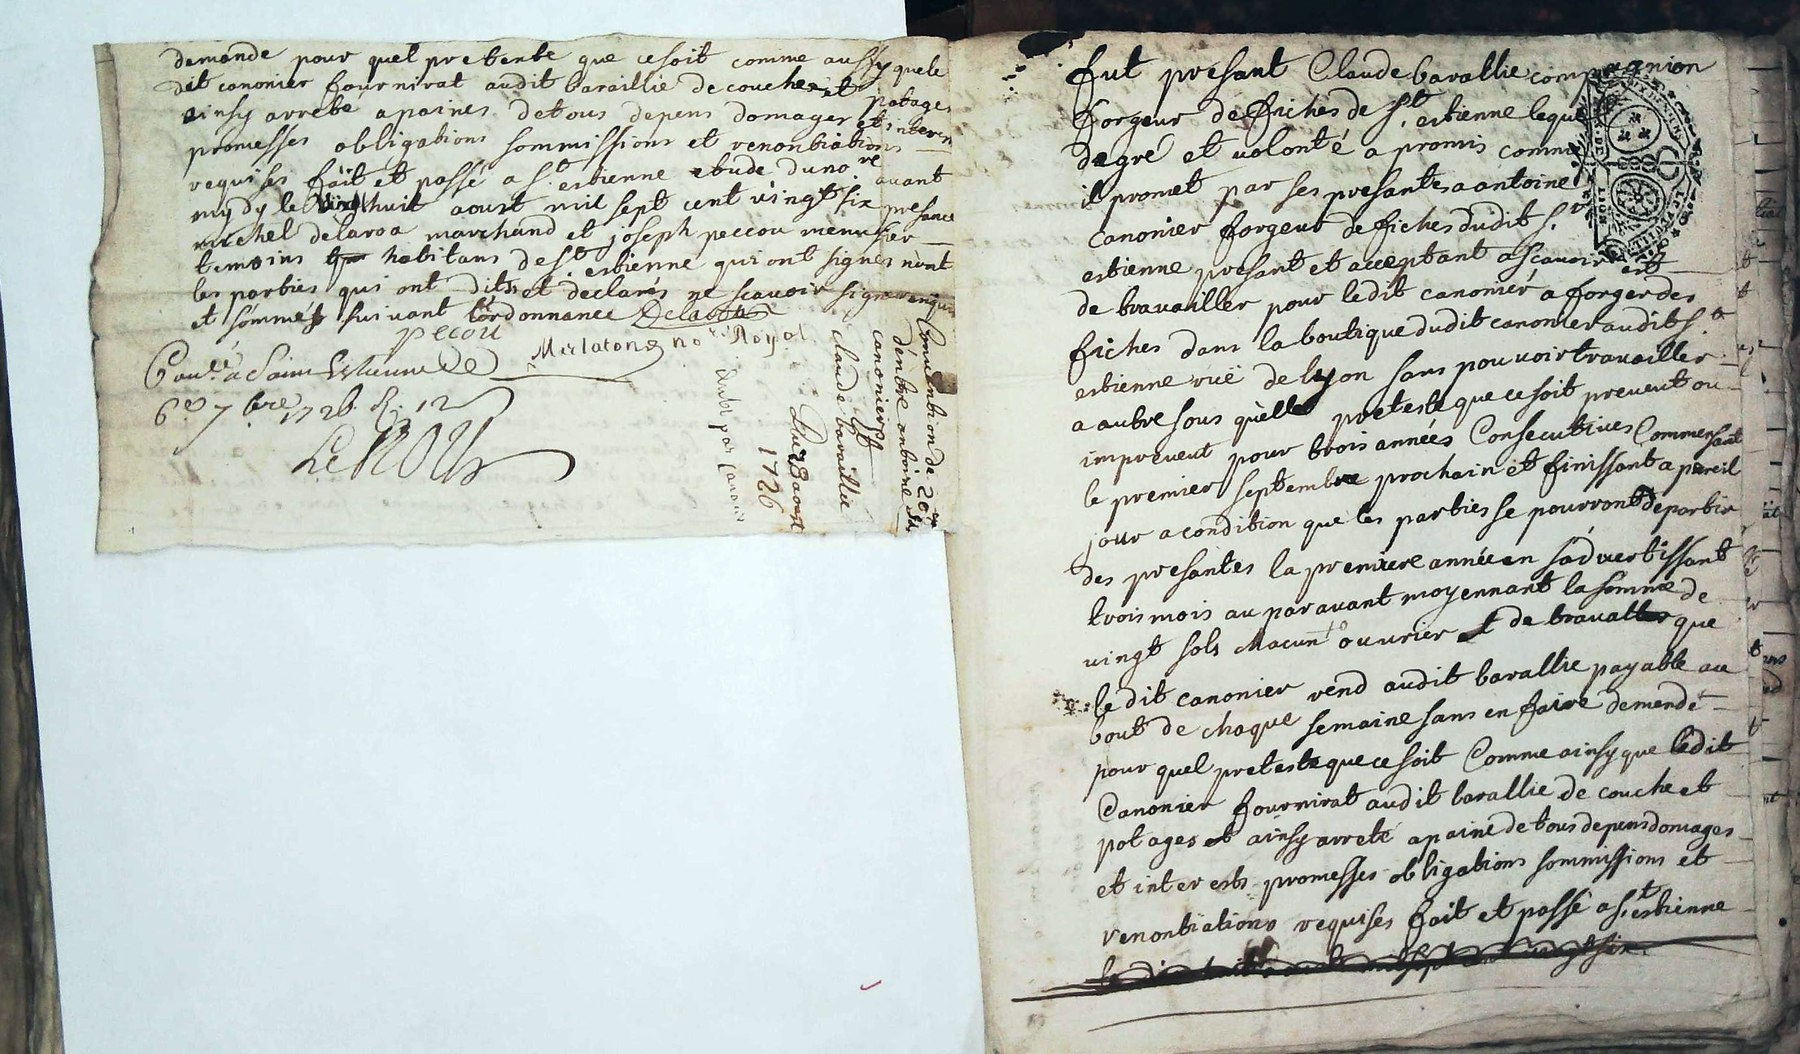 demande pour quel pretente que ce soit comme aussy que le
dit canonier fournirat audit baraillie de couches et potages
ainsy arrete a paines de tous depens domages et interes
promesses obligations sommissions et renontiations
requises fait et passé a St estienne etude du nore avant
mydy le huit aoust mil sept cent vingt six presance
michel delaroa marchand et joseph peccou menusier
temoins habitans de St estienne qui ont signés nont
les parties qui ont dits et declarés ne scavoir signer enquis
et sommés suivant lordonnance Delaroa
pecou
Merlaton no re Royal
Conle a Saint Estienne le
6e 7bre 1726 R 12 s
LeNOIR
Convention de
dentre antoine
canonier et
claude baraillie
Du aoust
1726
fut présant Claude barallie compagnion
forgeur de fiches de St estienne lequel
de gré et volonté a promis comme
il promet par ses presantes a antoine
Canonier forgeur de fiches dudit St
estienne presant et acceptant a scavoir est
de travailler pour ledit canonier a forger des
fiches dans la boutique dudit canonier audit St
estienne rue de lyon sans pouvoir travailler
a autre sous quelle preteste que ce soit preveut ou
impreveut pour trois années Consecutives Commensant
le premier septembre prochain et finissant a pareil
jour a condition que les parties se pourront departir
des presantes la premiere année en sadvertissant
trois mois au paravant moyennant la somme de
vingt sols chacun ouvrier de travaller que
ledit canonier rend audit barallie payable au
bout de chaque semaine sans en faire demende
pour quel preteste que ce soit Comme ainsy que ledit
Canonier fournirat audit barallie de couche et
potages et ainsy arreté a paine de tous depens domages
et interests promesses obligations sommissions et
renontiations requises fait et passé a St estienne